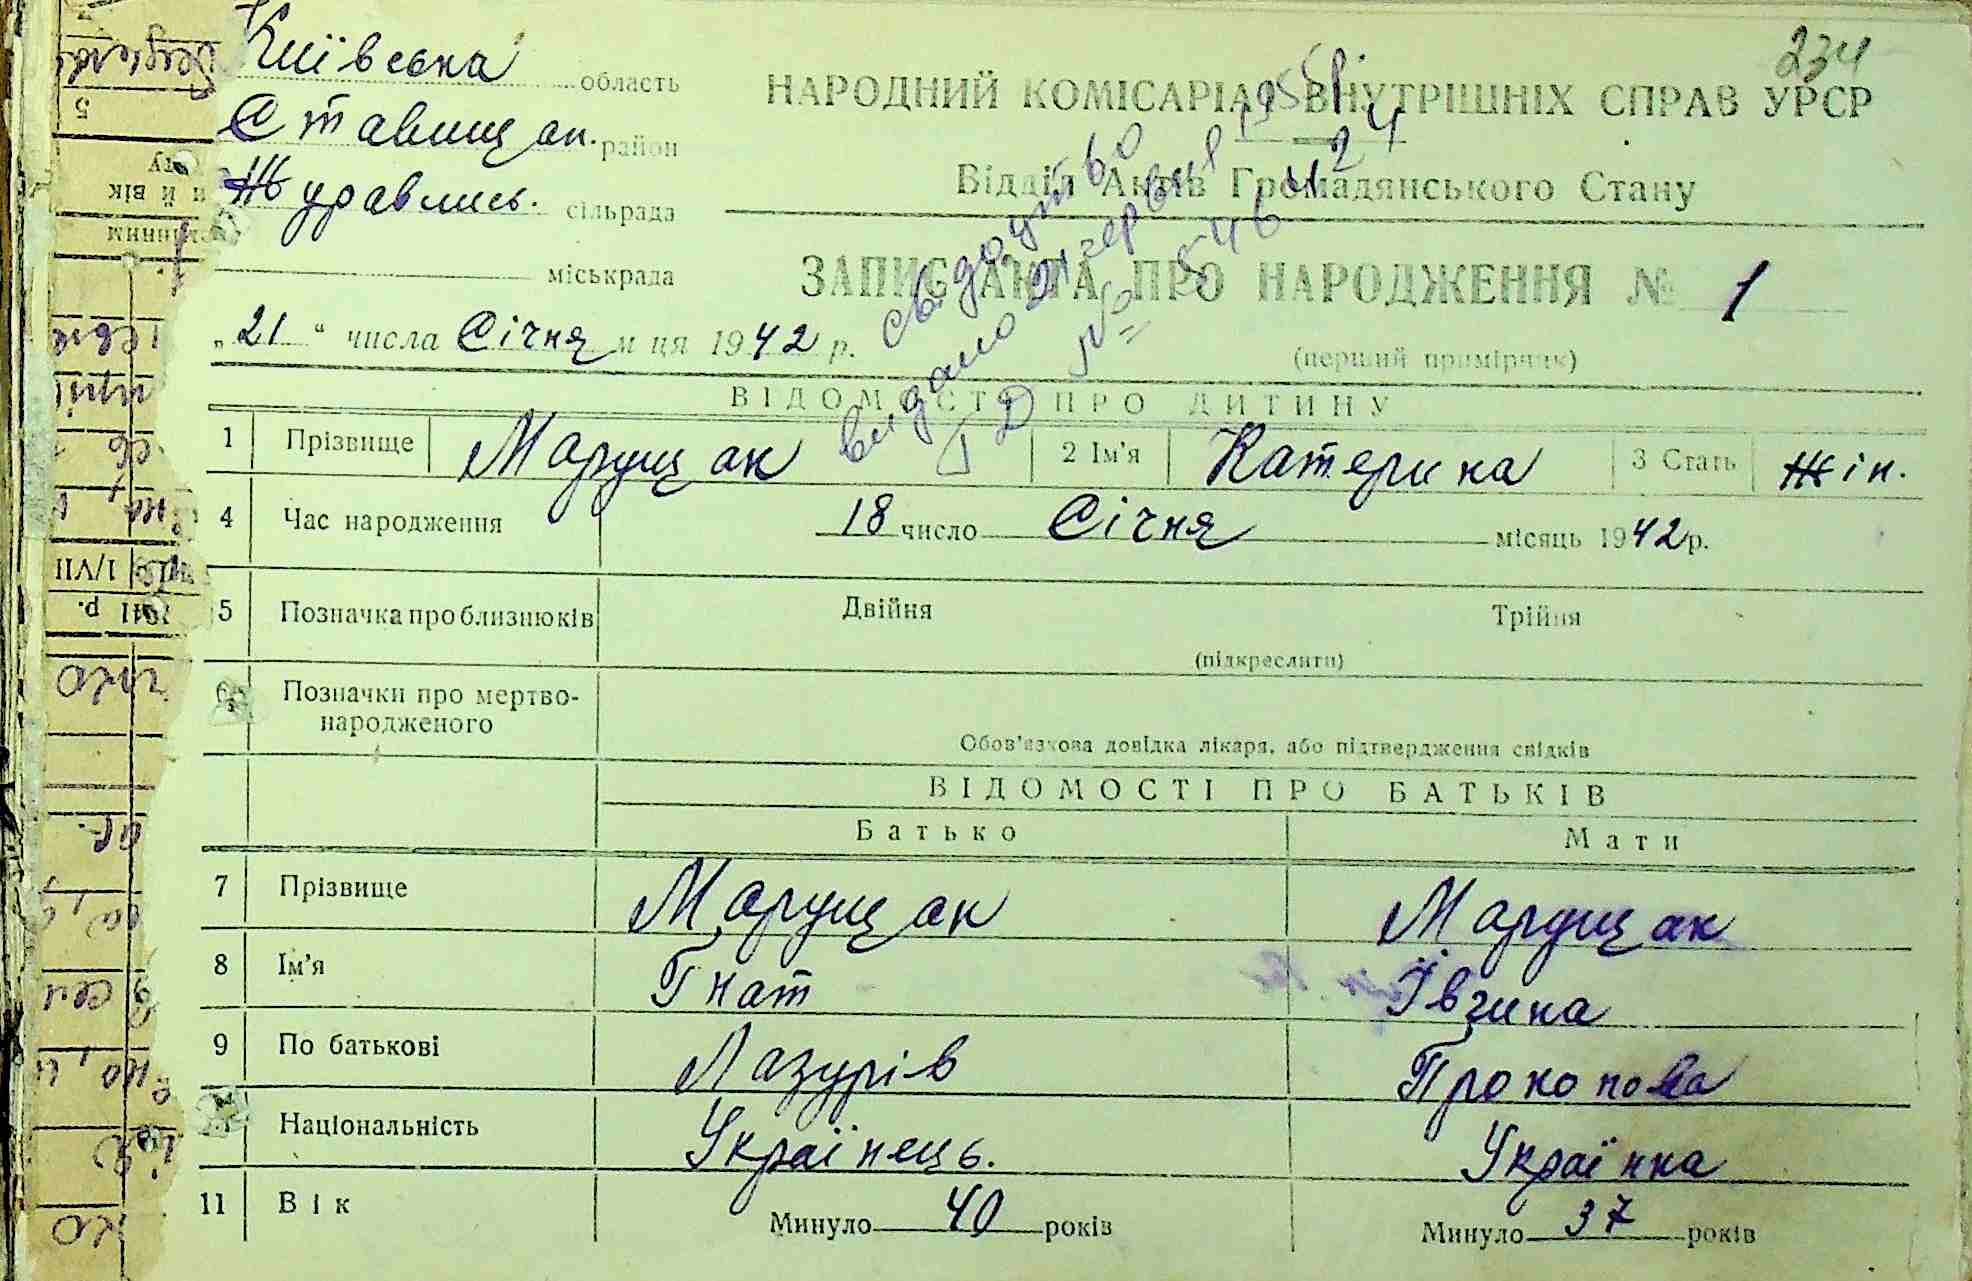 234
Київська область
Ставищан. район
Журавлись. сільрада
міськрада
НАРОДНИЙ КОМІСАРІАТ ВНУТРІШНІХ СПРАВ УРСР
Відділ Актів Громадянського Стану
ЗАПИС АКТА ПРО НАРОДЖЕННЯ № 1
(перший примірник)
„21" числа Січня м-ця 1942 р.
свидоцтво
видано 21 червня
№
ВІДОМОСТІ ПРО ДИТИНУ
1 Прізвище Марущак 2 Ім'я Катерина 3 Стать Жін.
4 Час народження 18 число Січня місяць 1942 р.
5 Позначка про близнюків Двійня Трійня
(підкреслити)
6 Позначки про мертво-
народженого
Обов'язкова довідка лікаря, або підтвердження свідків
ВІДОМОСТІ ПРО БАТЬКІВ
Батько Мати
7 Прізвище Марущак Марущак
8 Ім'я Гнат Ївзина
9 По батькові Лазурів Прокопова
Національність Українець. Українка
11 Вік Минуло 40 років Минуло 37 років